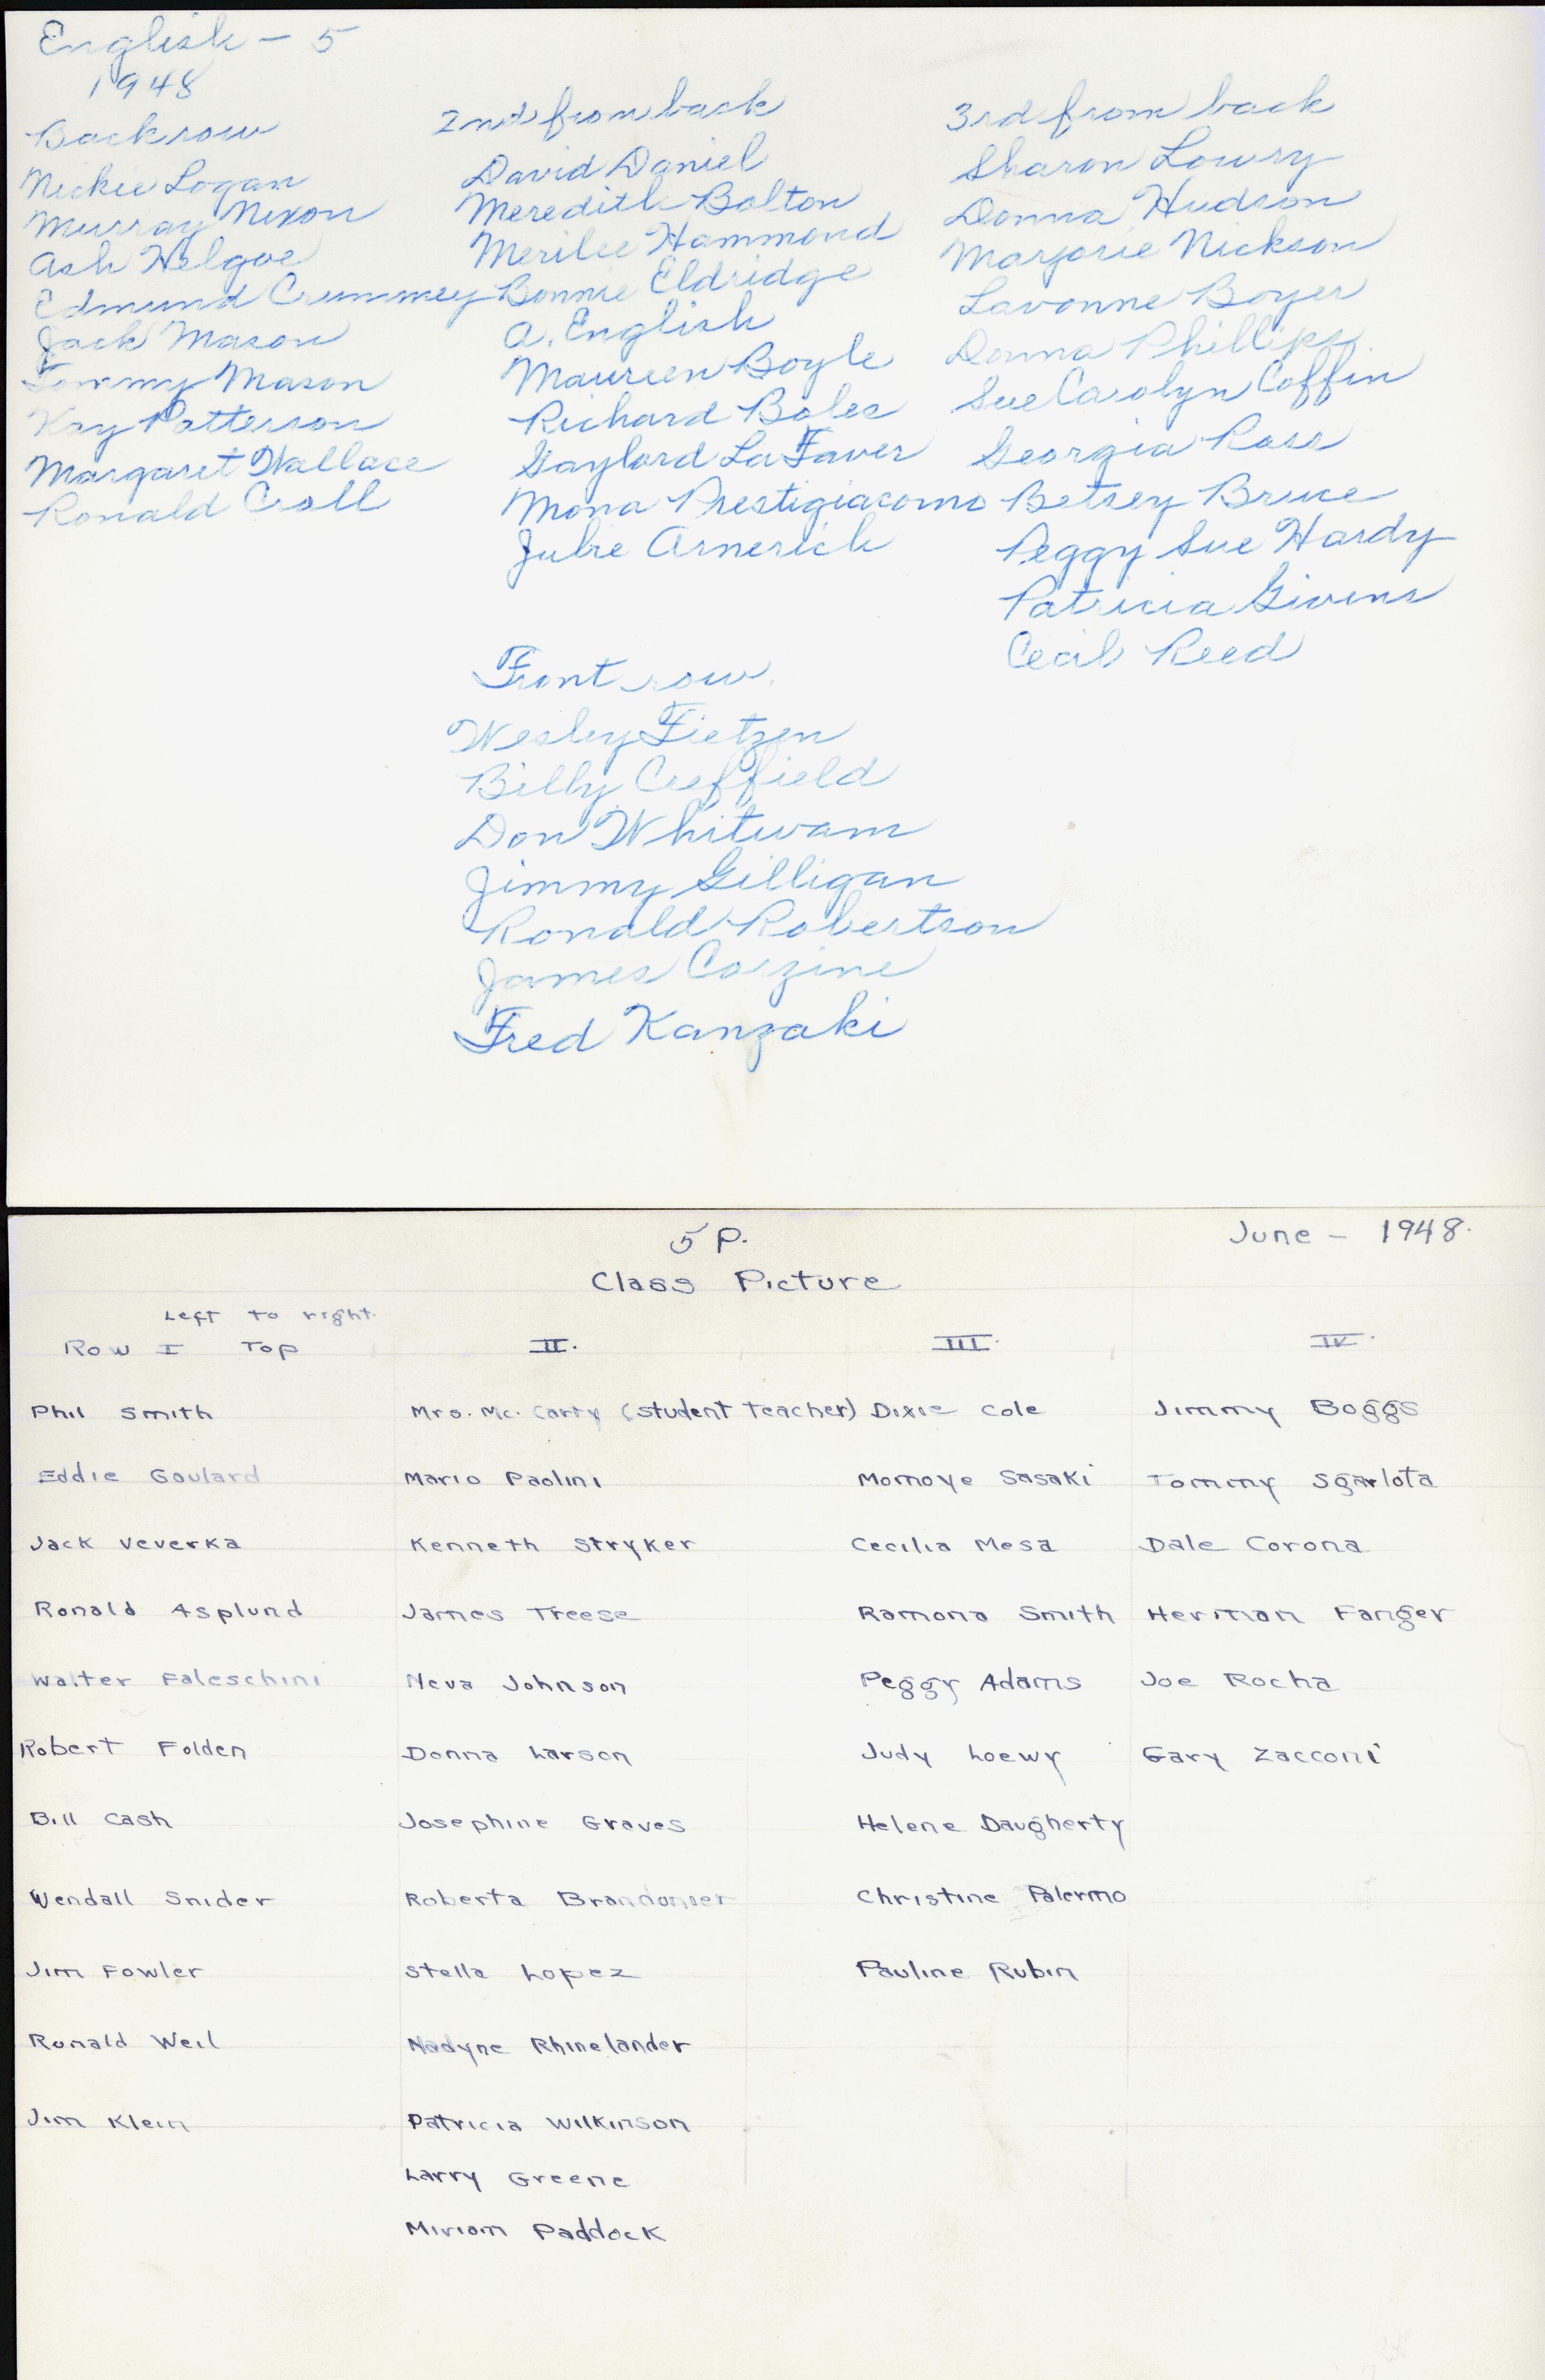 English - 5
1948
Back row
Nickie Logan
Murray Nixon
Ash Helgoe
Edmund Crummey
Jack Mason
Tommy Mason
Kay Patterson
Margaret Wallace
Ronald Croll
2nd from back
David Daniel
Meredith Bolton
Merilee Hammond
Bonnie Eldridge
A. English
Maureen Boyle
Richard Boles
Gaylord LaFaver
Mona Prestigiacomo
Julie Arnerich
3rd from back
Sharon Lowry
Donna Hudson
Marjorie Nickson
Lavonne Boyer
Donna Phillips
Sue Carolyn Coffin
Georgia Ross
Betsey Bruce
Peggy Sue Hardy
Patricia Givens
Cecil Reed
Front row
Wesley Fietzen
Billy Creffield
Don Whitwam
Jimmy Gilligan
Ronald Robertson
James Cozine
Fred Kanzaki
5 P.
June - 1948.
Class Picture
Left to right.
Row I Top
Phil Smith
Eddie Goulard
Jack Veverka
Ronald Asplund
Walter Faleschini
Robert Folden
Bill Cash
Wendall Snider
Jim Fowler
Ronald Weil
Jim Klein
II.
Mrs. Mc. Carty (student teacher)
Mario Paolini
Kenneth Stryker
James Treese
Neva Johnson
Donna Larson
Josephine Graves
Roberta
Stella Lopez
Nadyne Rhinelander
Patricia Wilkinson
Larry Greene
Miriam Paddock
III.
Dixie Cole
Momoye Sasaki
Cecilia Mesa
Ramona Smith
Peggy Adams
Judy Loewy
Helene Daugherty
Christine Palermo
Pauline Rubin
IV.
Jimmy Boggs
Tommy Sgarlota
Dale Corona
Herman Fanger
Joe Rocha
Gary Zacconi